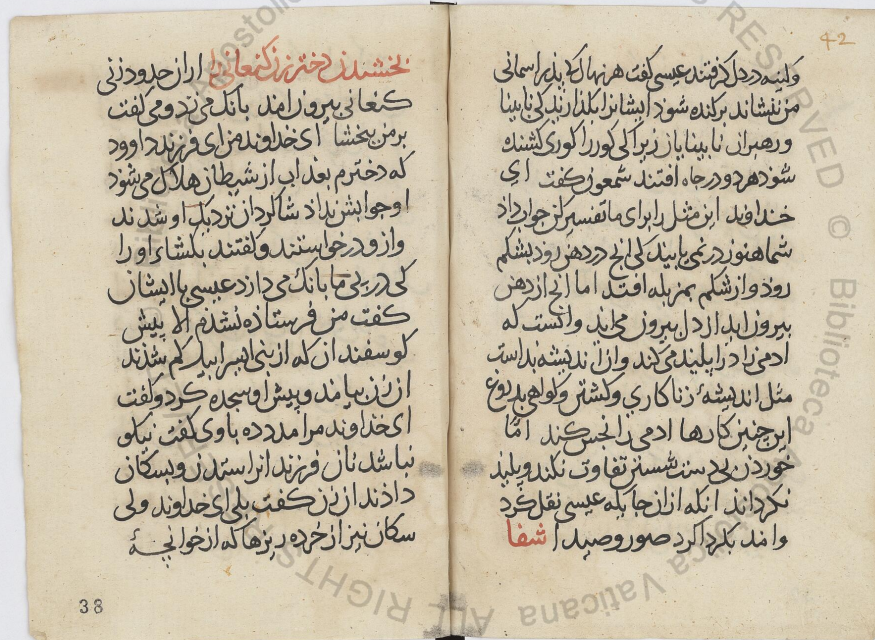 وکینه در دل کرفتند عیسی کفت هر نهال که پذیر اسمانی
من ننشاند برکنده شود ایشانرا بکذارید کی نابینا
و رهبران نابینایاز زیرا کی کور را کوری کشنده
شود هردو در چاه افتند شمعون کفت ای
خداوند این مثل را برای ما تفسیر کن جواب داد
شما هنوز در نمی یابید کی انج در دهن روذ بشکم
روذ و از شکم بمزبله افتد اما انج از دهن
بیرون اید از دل بیرون می اید و انست که
ادمی زاد را پلید می کند و از اندیشه بد است
مثل اندیشهٔ زناکاری و کشتن و کواهی بدروغ
این چنین کارها ادمی را نجس کند اما
خوردن بی دست شستن تفاوت نکند و پلید
نکرداند انکه از ان جایکه عیسی نقل کرد
وامد بکرداکرد صور و صیدا شفا
42
بخشیدن دختر زن کنعانی را از ان حدود زنی
کنعانی بیرون امد بانک می زد و می کفت
بر من ببخشا ای خداوند من ای فرزند داوود
که دخترم بعذاب از شیطان هلاک می شود
او جوابش نداد شاکردان نزدیک او شدند
و ازو درخواستند و کفتند بکشاء او را
کی در پی ما بانک می دارد عیسی با ایشان
کفت من فرستاده نشدم الا پیش
کوسفندان که از بنی اسراییل کم شذند
ان زن بیامد و پیش او سجده کرد و کفت
ای خداوند مرا مدد ده باوی کفت نیکو
نباشد نان فرزندانرا ستدن و بسکان
دادن ان زن کفت بلی ای خداوند ولی
سکان نیز از خرده ریزها که از خوانچهٔ
38
RESERVED © Biblioteca Apostolica Vaticana ALL RIGHTS